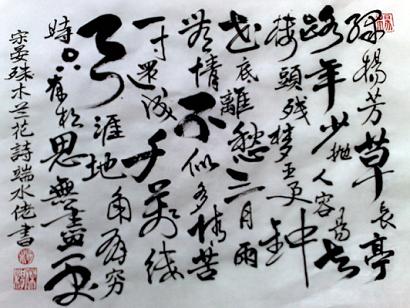 綠楊芳草長亭
路年少抛人容易去
楼頭残梦五更鐘
花底離愁三月雨
無情不似多情苦
一寸還成千萬縷
天涯地角有窮
時只有相思無盡處
宋晏殊木兰花詩端水佬書